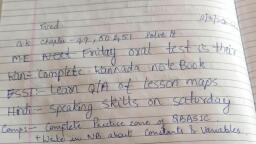 Read
G.k chapter - 49, 50 & 51 solve it
M.E Next Friday oral test is their
Kan:- Complete kannada note Book
ESSD:- Learn Q/A of lesson maps
Hindi:- Speaking skills on saturday
Comp:- Complete Practice zone of QBASIC
+ Write in NB about Constants & Variables